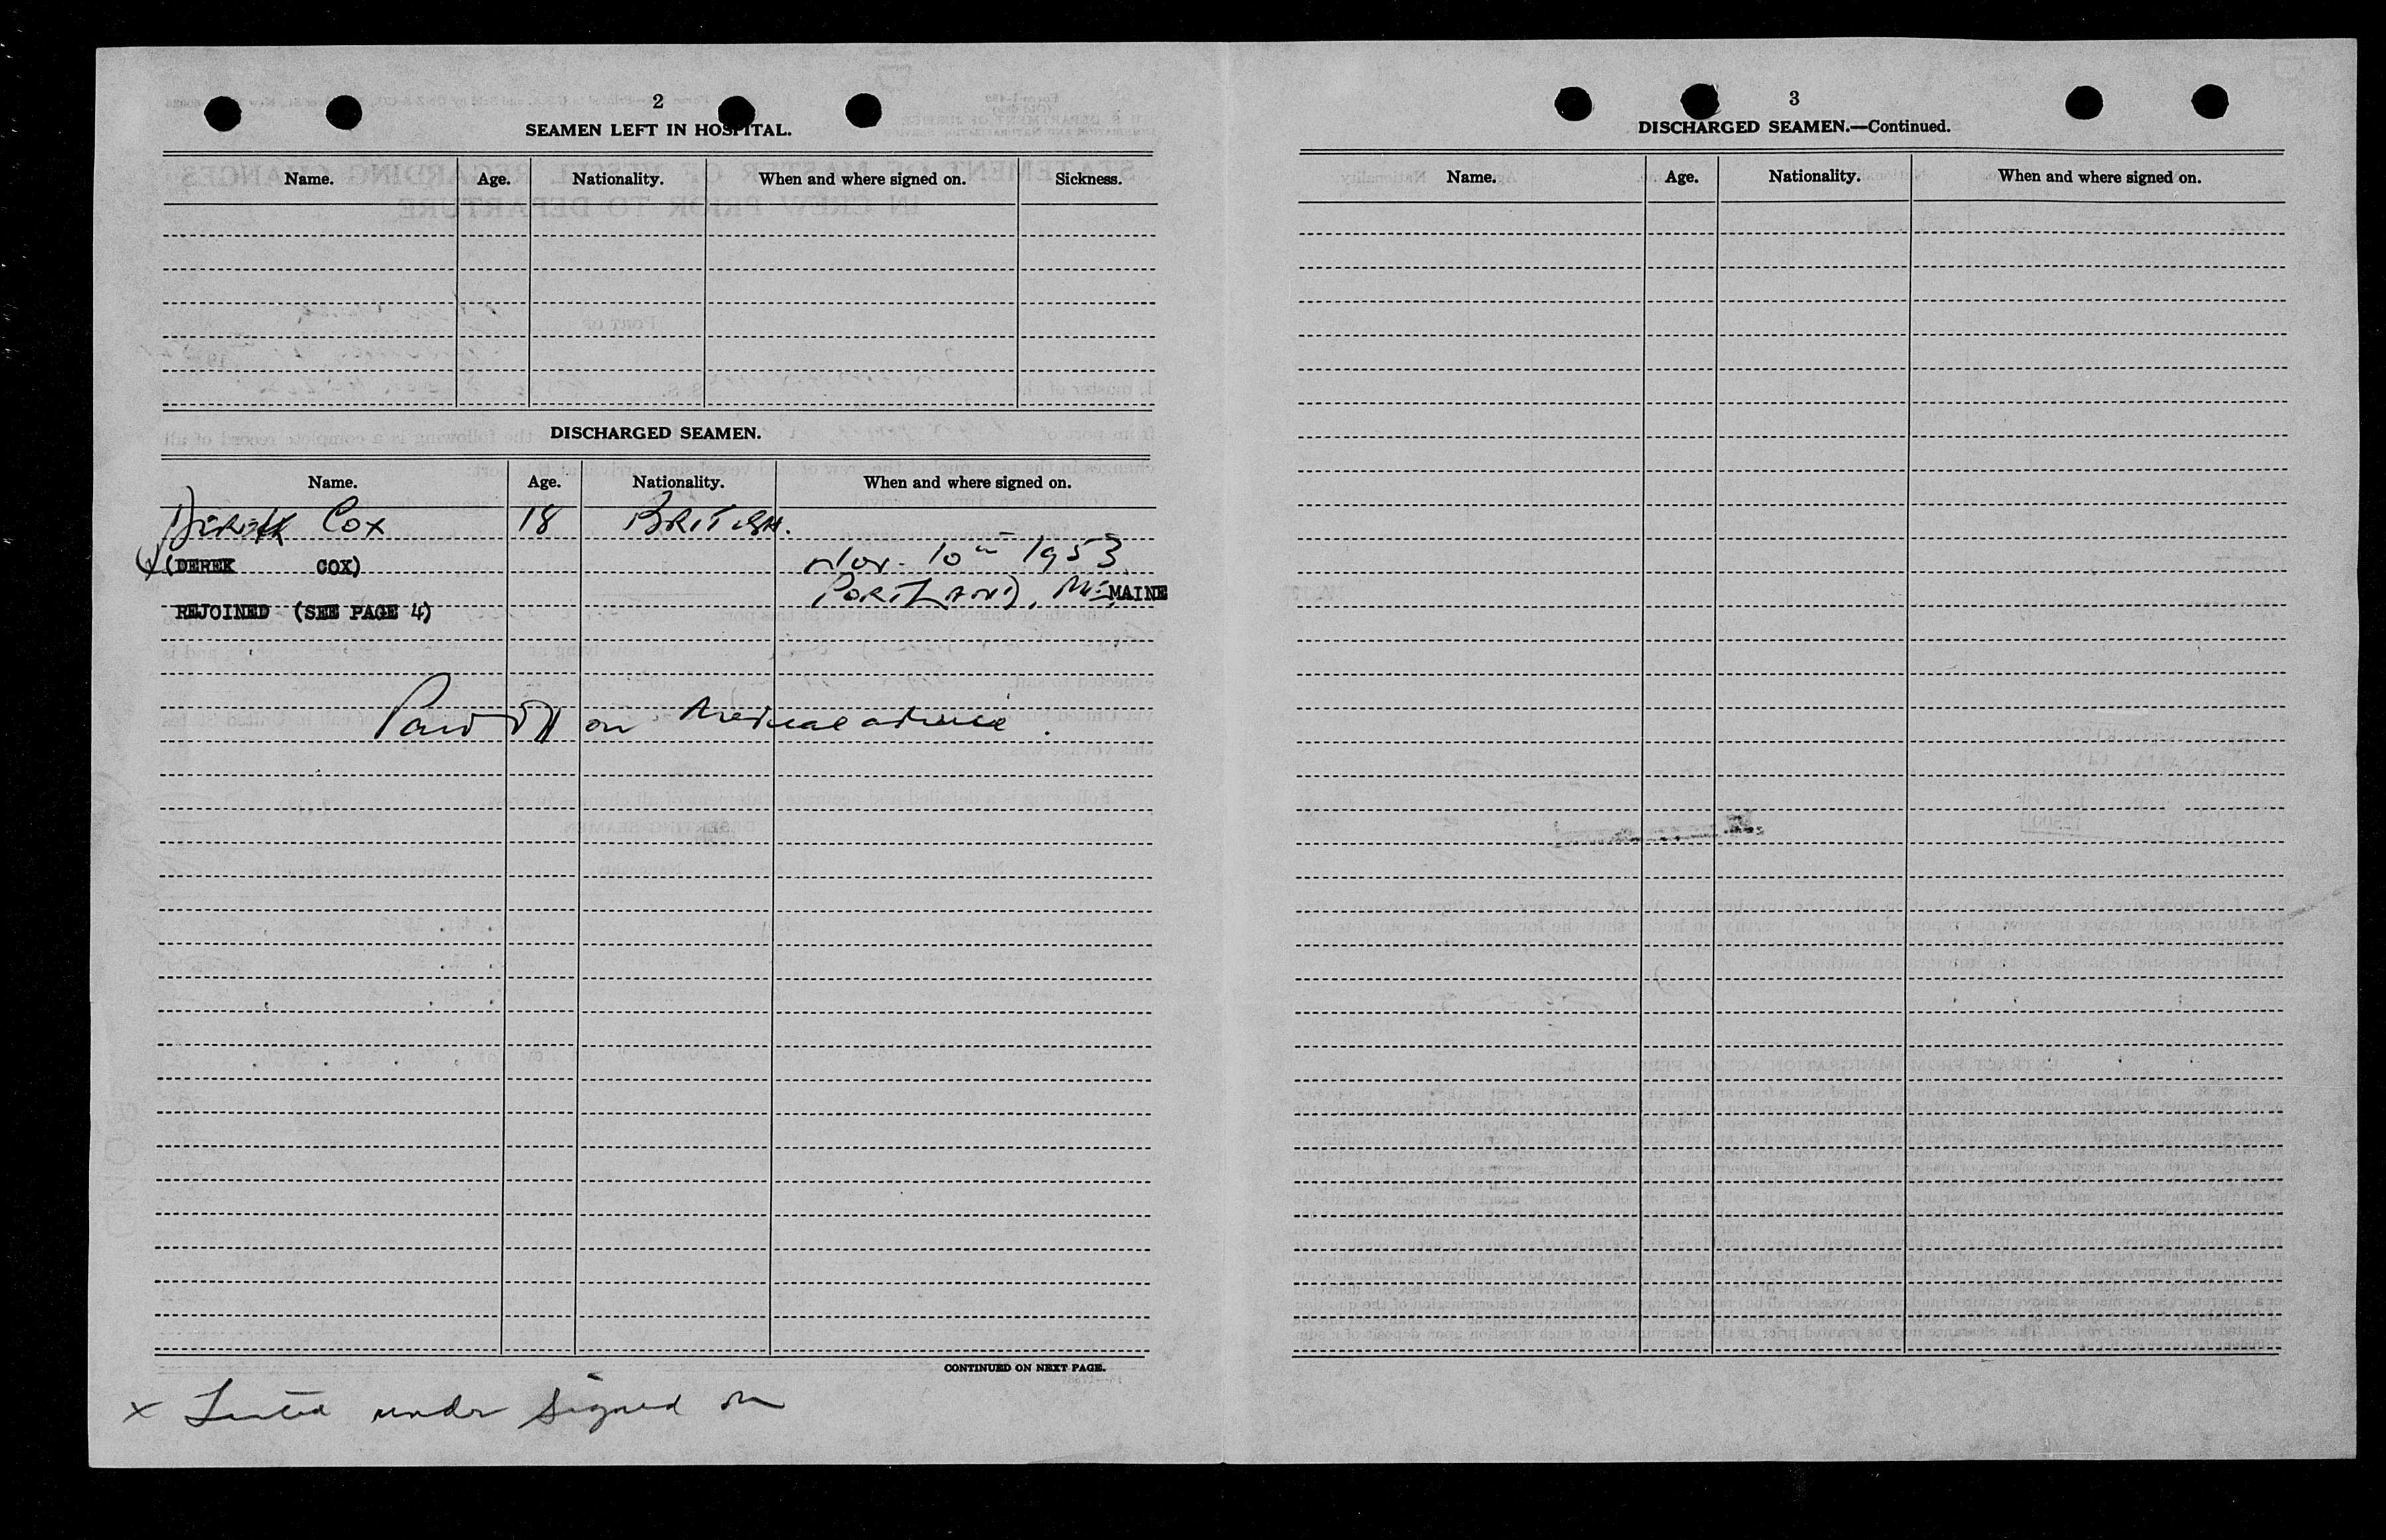 2
SEAMEN LEFT IN HOSPITAL.
Name. Age. Nationality. When and where signed on. Sickness.
DISCHARGED SEAMEN.
Name. Age. Nationality. When and where signed on.
Derek Cox 18 British.
(DEREK COX) Nov. 10th 1953
Portland, Me MAINE
REJOINED (SEE PAGE 4)
Paid off on medical advice.
CONTINUED ON NEXT PAGE.
x Listed under signed on
3
DISCHARGED SEAMEN.—Continued.
Name. Age. Nationality. When and where signed on.